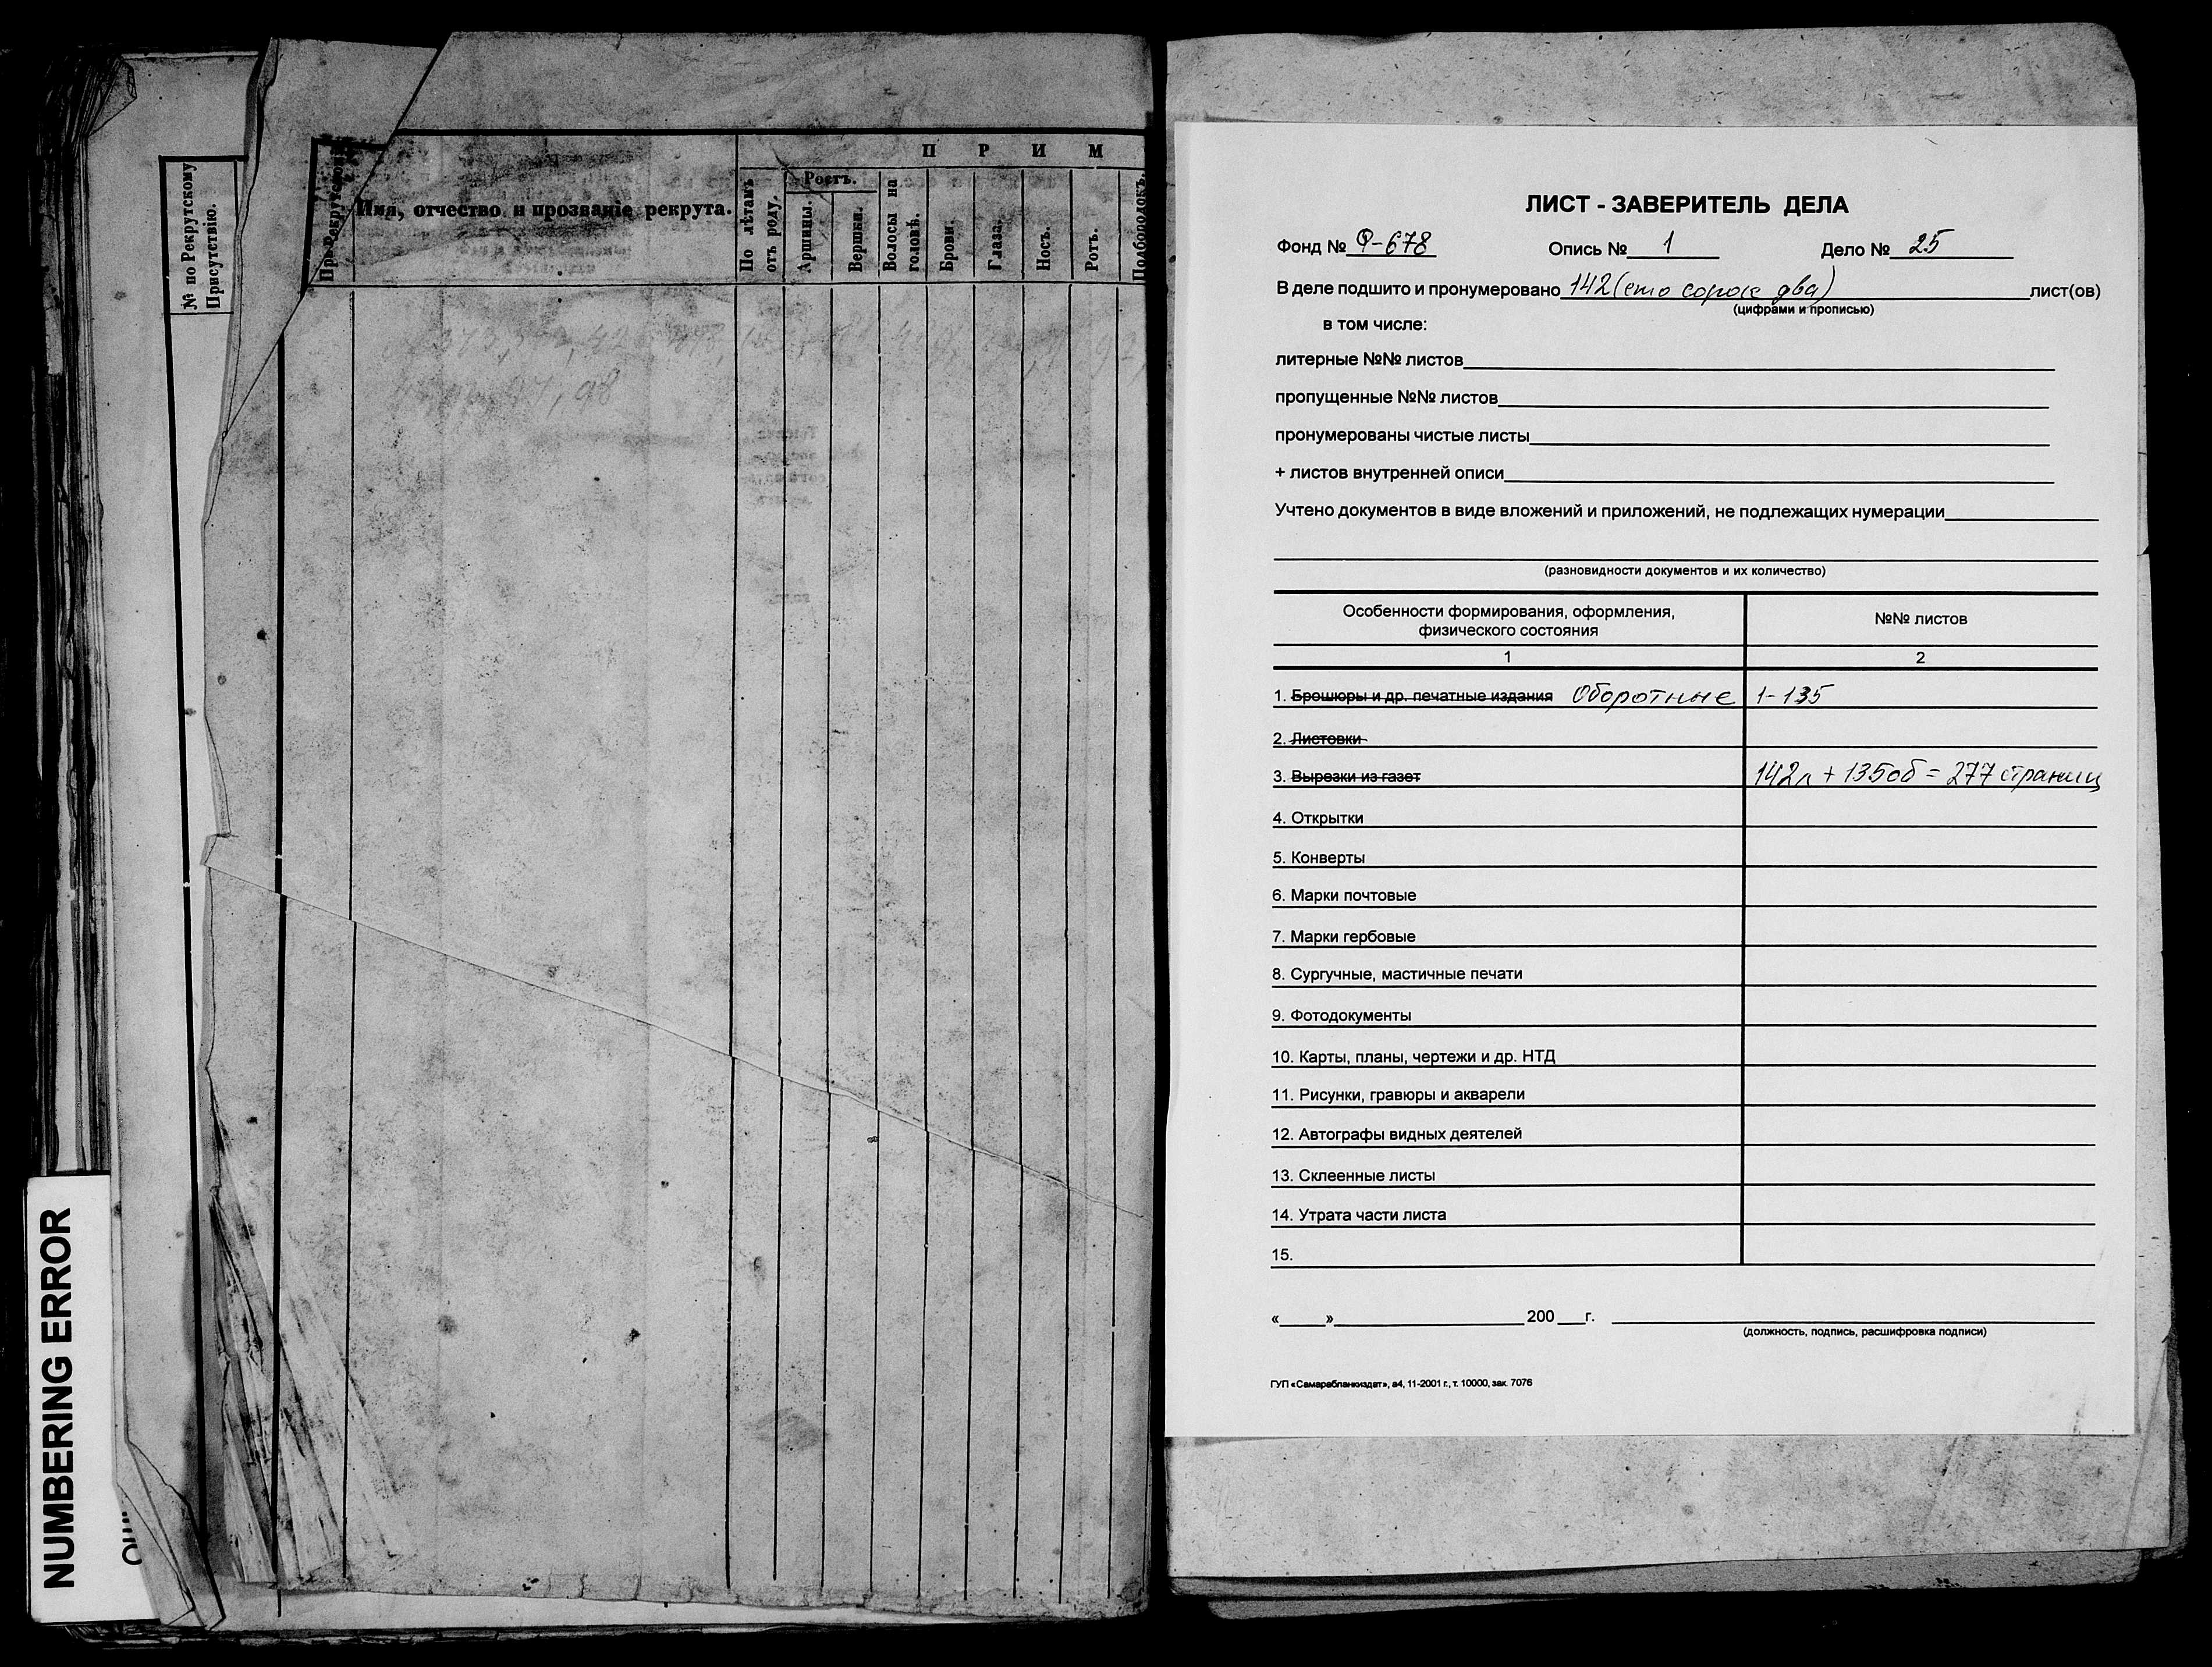 № по Рекрутскому
Присутствію.
Имя, отчество и прозваніе рекрута.
П Р И М
По лѣтамъ
отъ роду.
Ростъ.
Аршины.
Вершки.
Волосы на
головѣ.
Брови.
Глаза.
Носъ.
Ротъ.
Подбородокъ.
NUMBERING ERROR
ЛИСТ - ЗАВЕРИТЕЛЬ ДЕЛА
Фонд № Ф-678 Опись № 1 Дело № 25
В деле подшито и пронумеровано 142 (сто сорок два) лист(ов)
(цифрами и прописью)
в том числе:
литерные №№ листов
пропущенные №№ листов
пронумерованы чистые листы
+ листов внутренней описи
Учтено документов в виде вложений и приложений, не подлежащих нумерации
(разновидности документов и их количество)
Особенности формирования, оформления,
физического состояния
№№ листов
1 2
1. Брошюры и др. печатные издания Оборотные 1-135
2. Листовки
3. Вырезки из газет 142л + 135об = 277 страниц
4. Открытки
5. Конверты
6. Марки почтовые
7. Марки гербовые
8. Сургучные, мастичные печати
9. Фотодокументы
10. Карты, планы, чертежи и др. НТД
11. Рисунки, гравюры и акварели
12. Автографы видных деятелей
13. Склеенные листы
14. Утрата части листа
15.
«    »    200    г.
(должность, подпись, расшифровка подписи)
ГУП «Самарабланкиздат», а4, 11-2001 г., т. 10000, зак. 7076